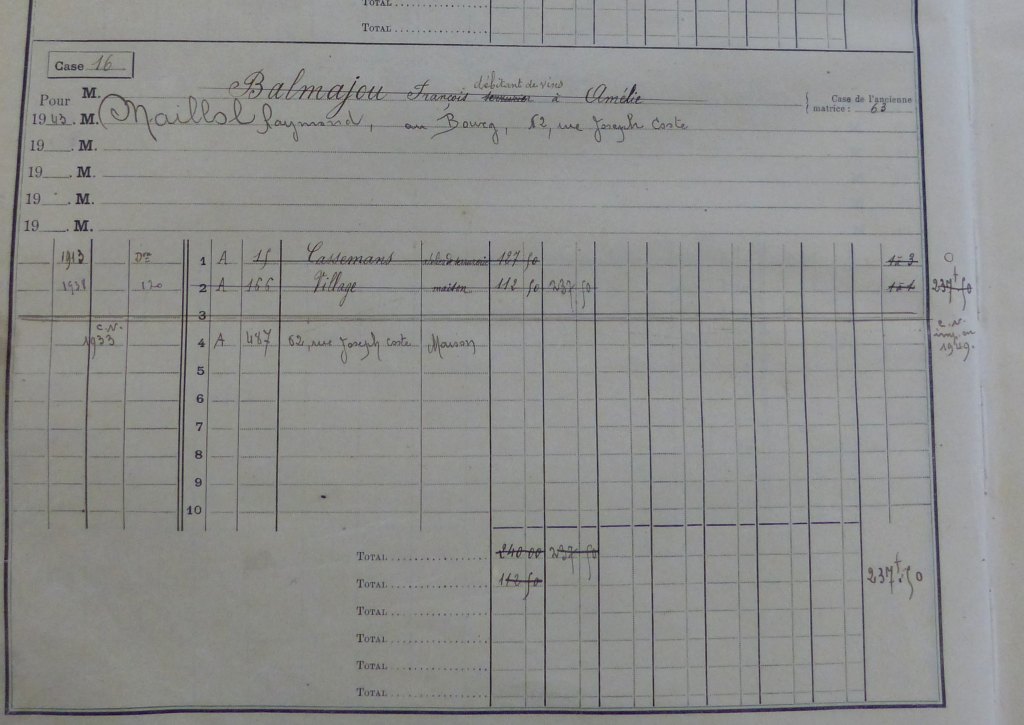 TOTAL
TOTAL
Case 16
M. Balmajou François débitant de vins serrurier à Amélie
Case de l'ancienne matrice : 63
Pour 1943. M. Maillol Raymond, au Bourg, 62, rue Joseph Coste
19 . M.
19 . M.
19 . M.
19 . M.
1913 Dre 1 A 15 Cassemans 127 50 1 à 3 0
1938 120 2 A 166 Village maison 112 50 237 50 1 à 1 237f 50
3
C.N. 1933 4 A 487 62, rue Joseph Coste Maison C.N. imp. en 1949.
5
6
7
8
9
10
TOTAL 240 00 237 50
TOTAL 112 50 237f. 50
TOTAL
TOTAL
TOTAL
TOTAL